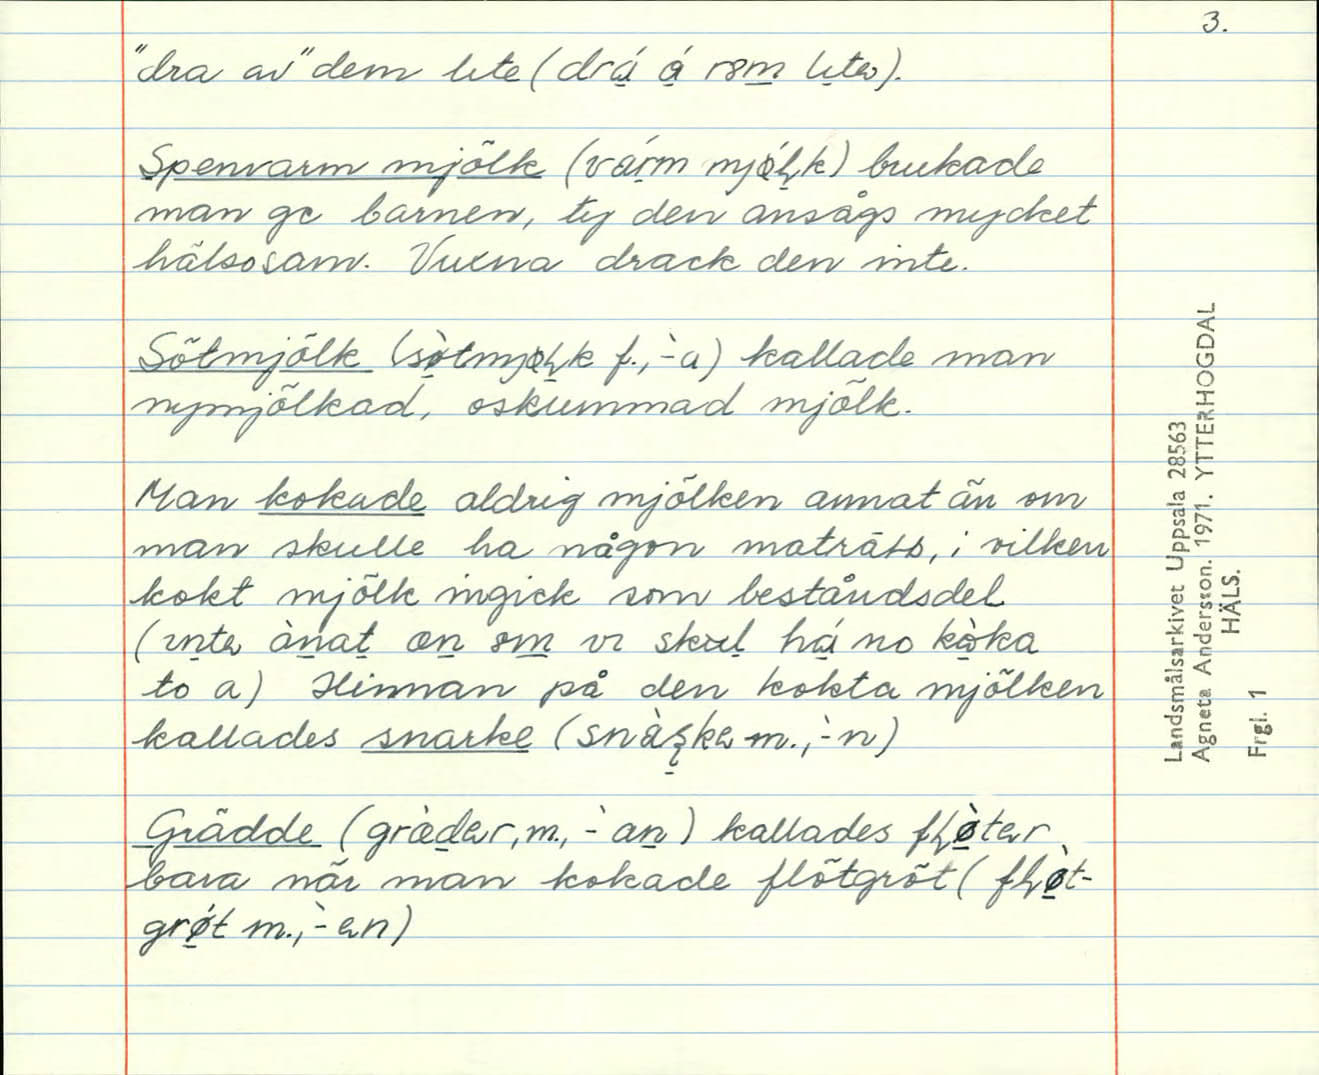 3.
"dra av" dem lite (drá á rɞm litə).
Spenvarm mjölk (várm mjǿɽk) brukade
man ge barnen, ty den ansågs mycket
hälsosam. Vuxna drack den inte.
Sötmjölk (sø̀tmjøɽk f., -̀a) kallade man
nymjölkad, oskummad mjölk.
Man kokade aldrig mjölken annat än om
man skulle ha någon maträtt, i vilken
kokt mjölk ingick som beståndsdel
(ıntə ànat æn ɞm vı skul há no kòka
to a) Hinnan på den kokta mjölken
kallades snarke (snàʂkə m., -̀n)
Grädde (græ̀dər, m., -̀an) kallades fɽø̀tər
bara när man kokade flötgröt (fɽø̀t-
grǿt m., -̀ən)
Landsmålsarkivet Uppsala 28563
Agneta Andersson. 1971. YTTERHOGDAL
HÄLS.
Frgl. 1